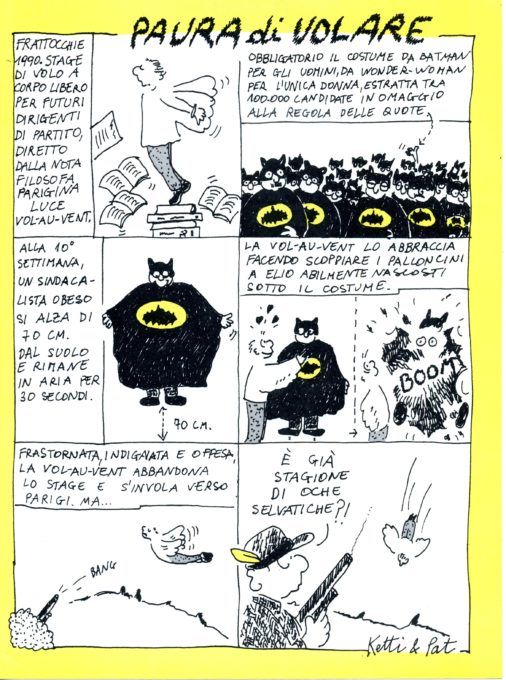 PAURA di VOLARE
FRATTOCCHIE
1990. STAGE
DI VOLO A
CORPO LIBERO
PER FUTURI
DIRIGENTI
DI PARTITO,
DIRETTO
DALLA NOTA
FILOSOFA
PARIGINA
LUCE
VOL-AU-VENT.
OBBLIGATORIO IL COSTUME DA BATMAN
PER GLI UOMINI, DA WONDER-WOMAN
PER L'UNICA DONNA, ESTRATTA TRA
100.000 CANDIDATE IN OMAGGIO
ALLA REGOLA DELLE QUOTE.
ALLA 10ª
SETTIMANA,
UN SINDACA-
LISTA OBESO
SI ALZA DI
70 CM.
DAL SUOLO
E RIMANE
IN ARIA PER
30 SECONDI.
70 CM.
LA VOL-AU-VENT LO ABBRACCIA
FACENDO SCOPPIARE I PALLONCINI
A ELIO ABILMENTE NASCOSTI
SOTTO IL COSTUME.
BOOM
FRASTORNATA, INDIGNATA E OFFESA,
LA VOL-AU-VENT ABBANDONA
LO STAGE E S'INVOLA VERSO
PARIGI. MA...
BANG
È GIÀ
STAGIONE
DI OCHE
SELVATICHE?!
Ketti & Pat